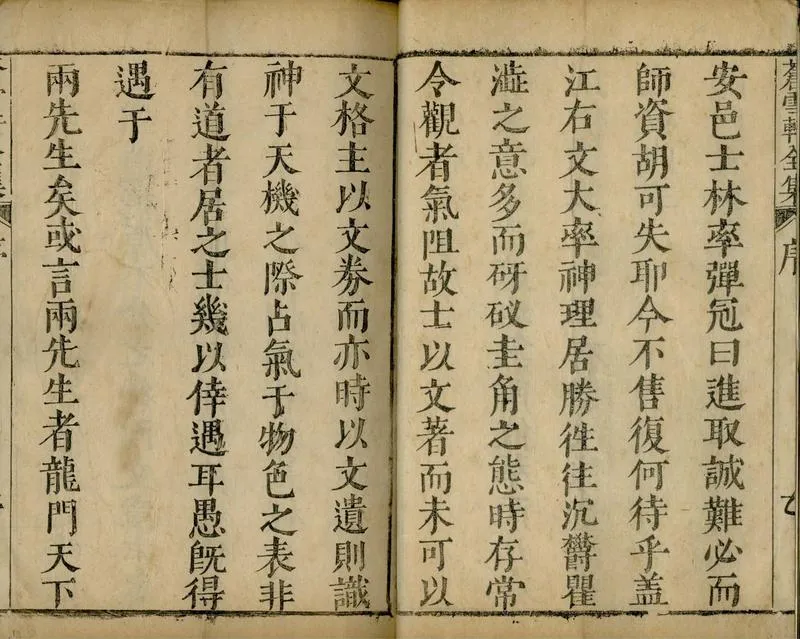 蒼雪軒全集
序
安邑士林率彈冠曰進取誠難必而
師資胡可失耶今不售復何待乎盖
江右文大率神理居勝徃往沉鬱瞿
澁之意多而砑砇圭角之態時存常
令觀者氣阻故士以文著而未可以
文格主以文劵而亦時以文遺則識
神于天機之際占氣于物色之表非
有道者居之士幾以倖遇耳愚旣得
遇于
兩先生矣或言兩先生者龍門天下